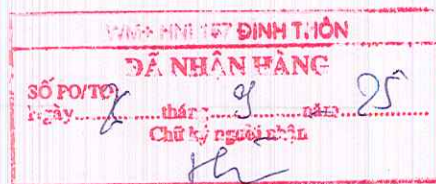 WM+ HNI 157 ĐÌNH THÔN
ĐÃ NHẬN HÀNG
SỐ PO/TO
Ngày 8 tháng 9 năm 25
Chữ ký người nhận